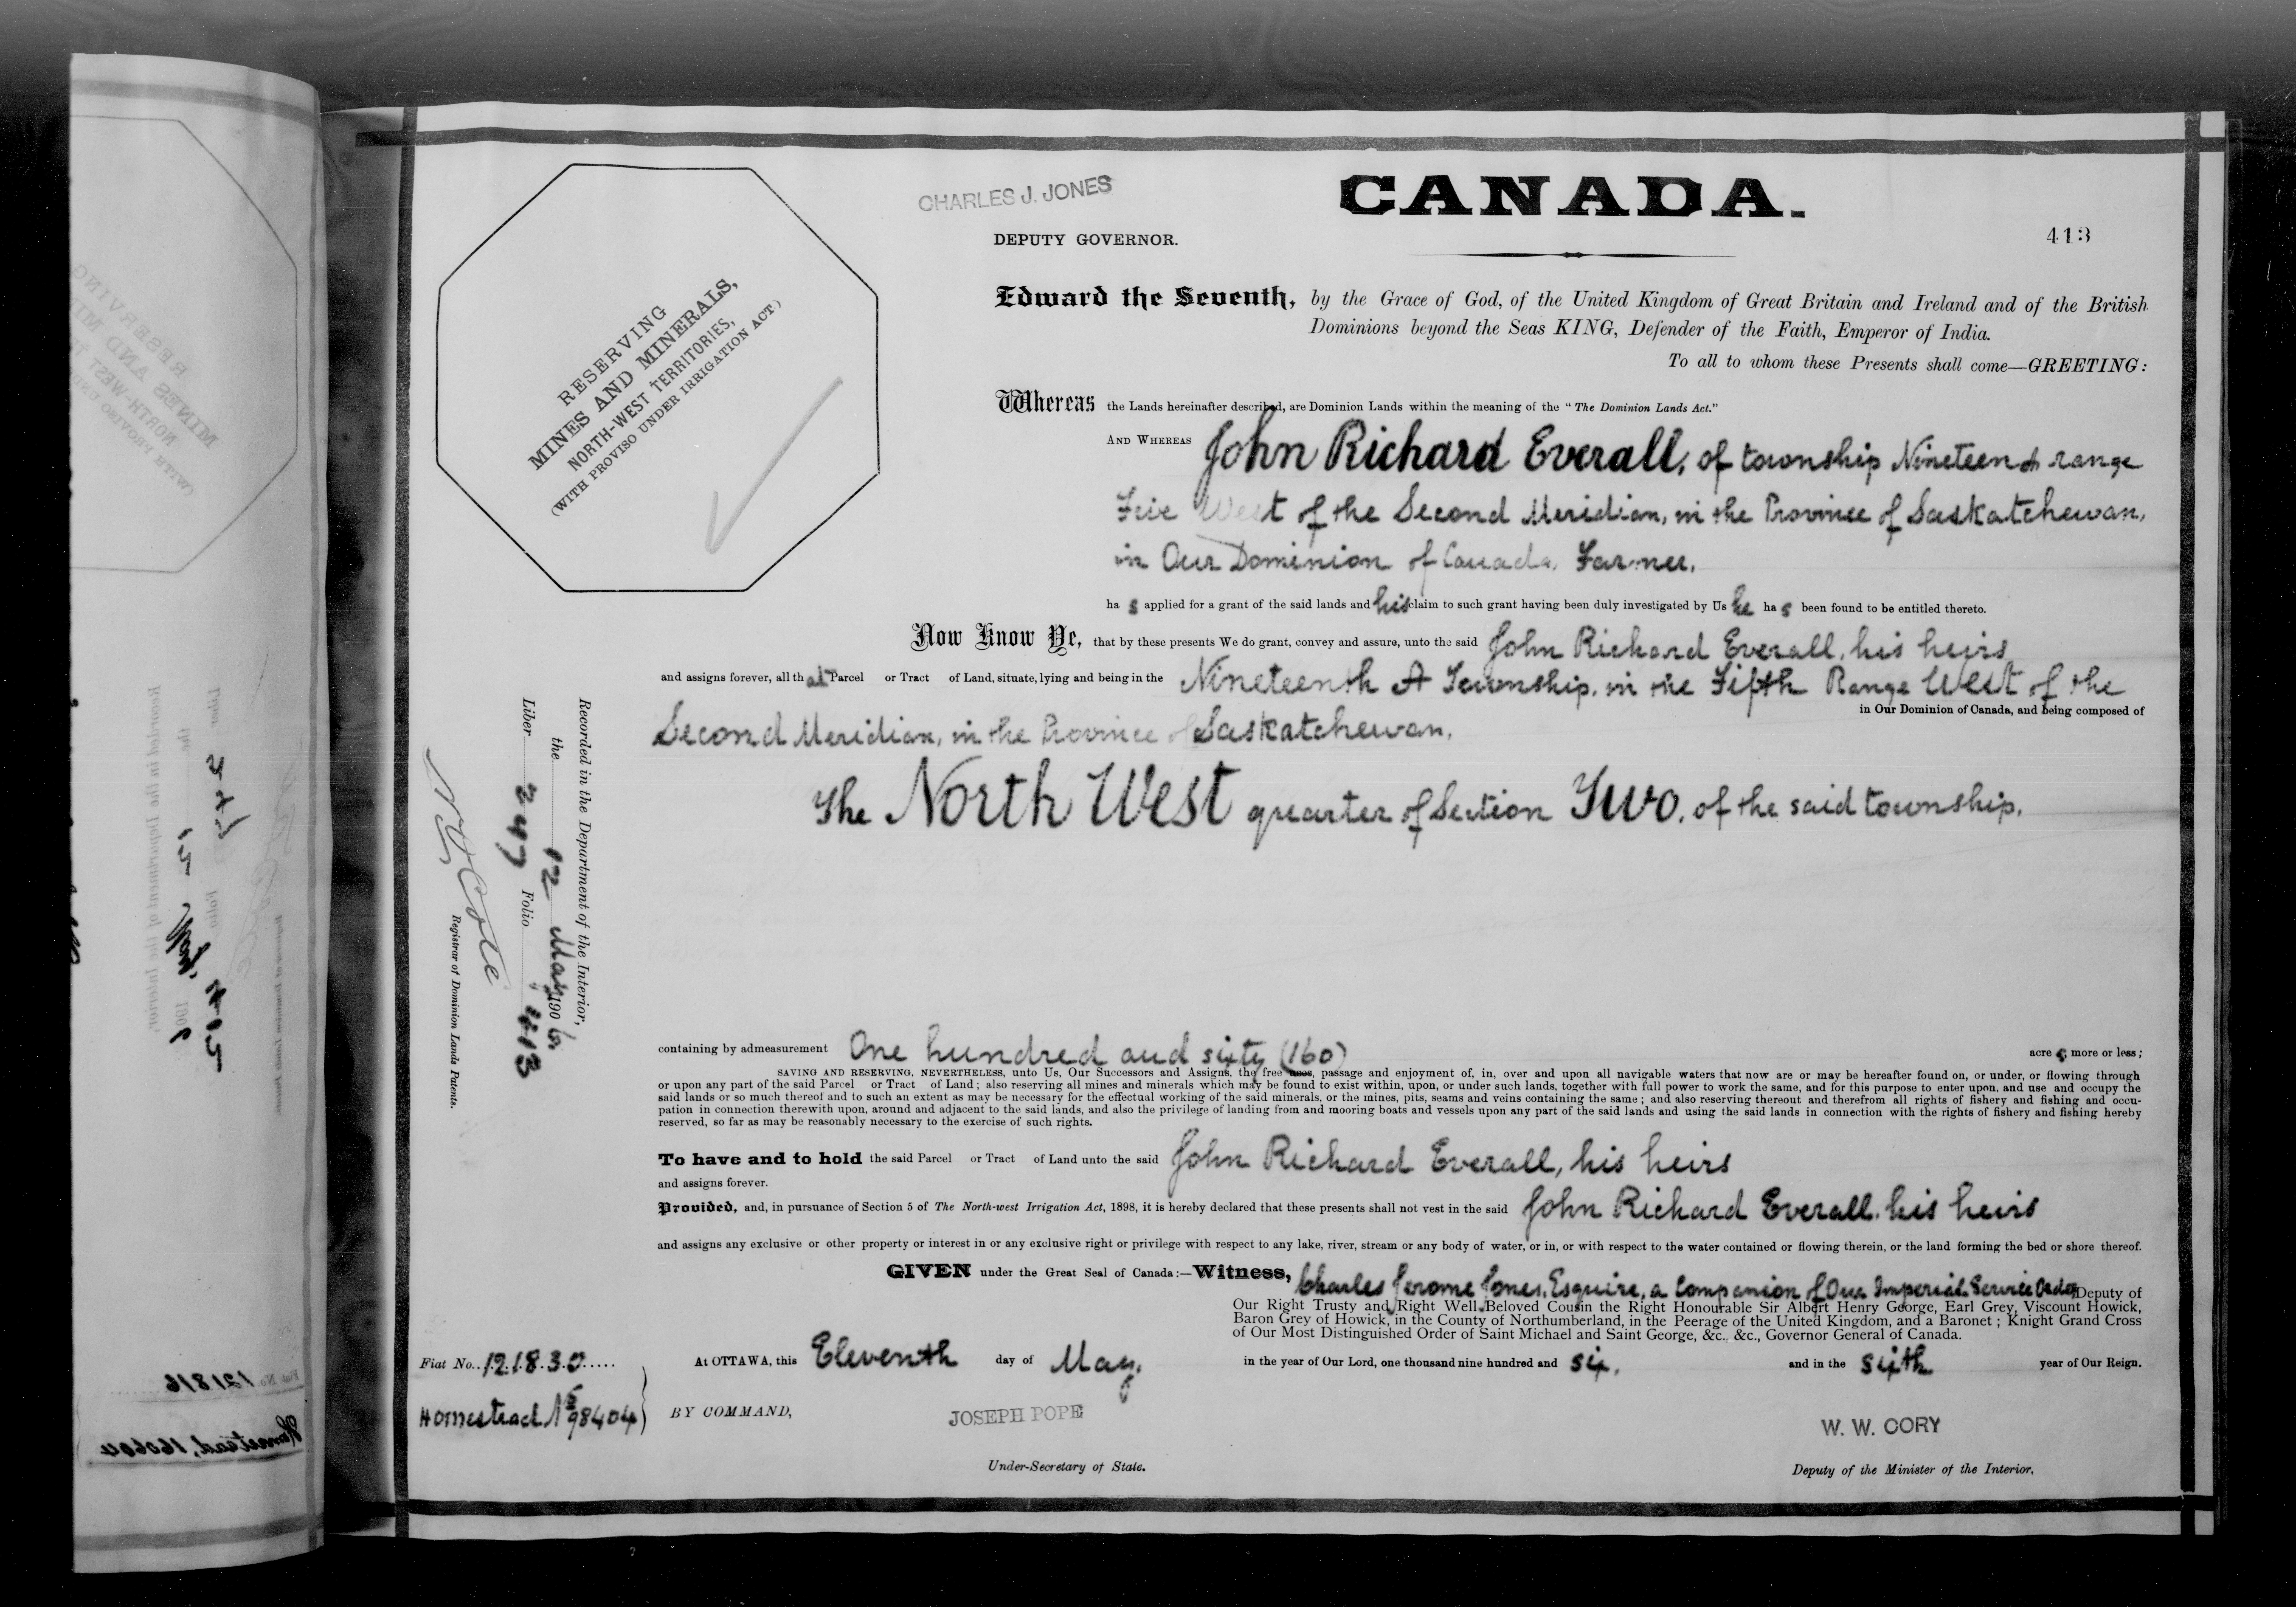 CHARLES J. JONES
CANADA.
DEPUTY GOVERNOR.
413
RESERVING
MINES AND MINERALS,
NORTH-WEST TERRITORIES,
(WITH PROVISO UNDER IRRIGATION ACT.)
Edward the Seventh, by the Grace of God, of the United Kingdom of Great Britain and Ireland and of the British
Dominions beyond the Seas KING, Defender of the Faith, Emperor of India.
To all to whom these Presents shall come—GREETING:
Whereas the Lands hereinafter described, are Dominion Lands within the meaning of the "The Dominion Lands Act."
AND WHEREAS John Richard Everall, of township Nineteen A range
Five West of the Second Meridian, in the Province of Saskatchewan,
in Our Dominion of Canada, Farmer,
ha s applied for a grant of the said lands and his claim to such grant having been duly investigated by Us he ha s been found to be entitled thereto.
Now Know Ye, that by these presents We do grant, convey and assure, unto the said John Richard Everall, his heirs
and assigns forever, all that Parcel or Tract of Land, situate, lying and being in the Nineteenth A Township, in the Fifth Range West of the
in Our Dominion of Canada, and being composed of
Second Meridian, in the Province of Saskatchewan.
The North West quarter of Section Two, of the said township.
Recorded in the Department of the Interior,
the 12 May 1906.
Liber 247 Folio 413
N.O. Coté
Registrar of Dominion Lands Patents.
containing by admeasurement One hundred and sixty (160) acre s, more or less;
SAVING AND RESERVING, NEVERTHELESS, unto Us, Our Successors and Assigns, the free uses, passage and enjoyment of, in, over and upon all navigable waters that now are or may be hereafter found on, or under, or flowing through
or upon any part of the said Parcel or Tract of Land; also reserving all mines and minerals which may be found to exist within, upon, or under such lands, together with full power to work the same, and for this purpose to enter upon, and use and occupy the
said lands or so much thereof and to such an extent as may be necessary for the effectual working of the said minerals, or the mines, pits, seams and veins containing the same; and also reserving thereout and therefrom all rights of fishery and fishing and occu-
pation in connection therewith upon, around and adjacent to the said lands, and also the privilege of landing from and mooring boats and vessels upon any part of the said lands and using the said lands in connection with the rights of fishery and fishing hereby
reserved, so far as may be reasonably necessary to the exercise of such rights.
To have and to hold the said Parcel or Tract of Land unto the said John Richard Everall, his heirs
and assigns forever.
Provided, and, in pursuance of Section 5 of The North-west Irrigation Act, 1898, it is hereby declared that these presents shall not vest in the said John Richard Everall, his heirs
and assigns any exclusive or other property or interest in or any exclusive right or privilege with respect to any lake, river, stream or any body of water, or in, or with respect to the water contained or flowing therein, or the land forming the bed or shore thereof.
GIVEN under the Great Seal of Canada:—Witness, Charles Jerome Jones, Esquire, a Companion of Our Imperial Service Order, Deputy of
Our Right Trusty and Right Well-Beloved Cousin the Right Honourable Sir Albert Henry George, Earl Grey, Viscount Howick,
Baron Grey of Howick, in the County of Northumberland, in the Peerage of the United Kingdom, and a Baronet; Knight Grand Cross
of Our Most Distinguished Order of Saint Michael and Saint George, &c., &c., Governor General of Canada.
Fiat No. 121830
At OTTAWA, this Eleventh day of May, in the year of Our Lord, one thousand nine hundred and six, and in the sixth year of Our Reign.
Homestead No 98404
BY COMMAND,
JOSEPH POPE
W. W. CORY
Under-Secretary of State.
Deputy of the Minister of the Interior.